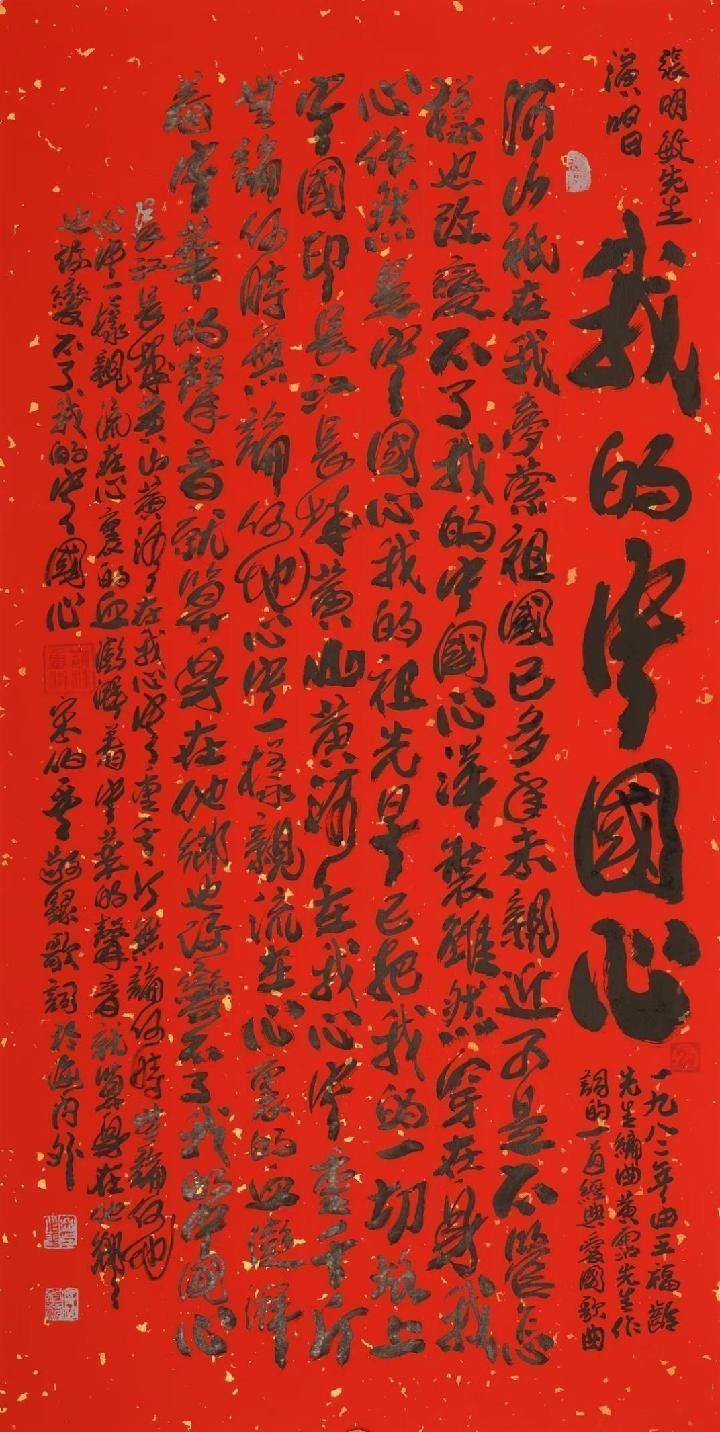 張明敏先生
演唱
我的中國心
一九八二年由王福齡
先生編曲黃霑先生作
詞的一首經典愛國歌曲
河山祇在我夢縈祖國已多年未親近可是不管怎
樣也改變不了我的中國心洋裝雖然穿在身我
心依然是中國心我的祖先早已把我的一切烙上
中國印長江長城黃山黃河在我心中重千斤
無論何時無論何地心中一樣親流在心裏的血澎湃
着中華的聲音就算身在他鄉也改變不了我的中國心
長江長城黃山黃河在我心中重千斤無論何時無論何地
心中一樣親流在心裏的血澎湃着中華的聲音就算身在他鄉
也改變不了我的中國心 敬錄歌詞於海內外